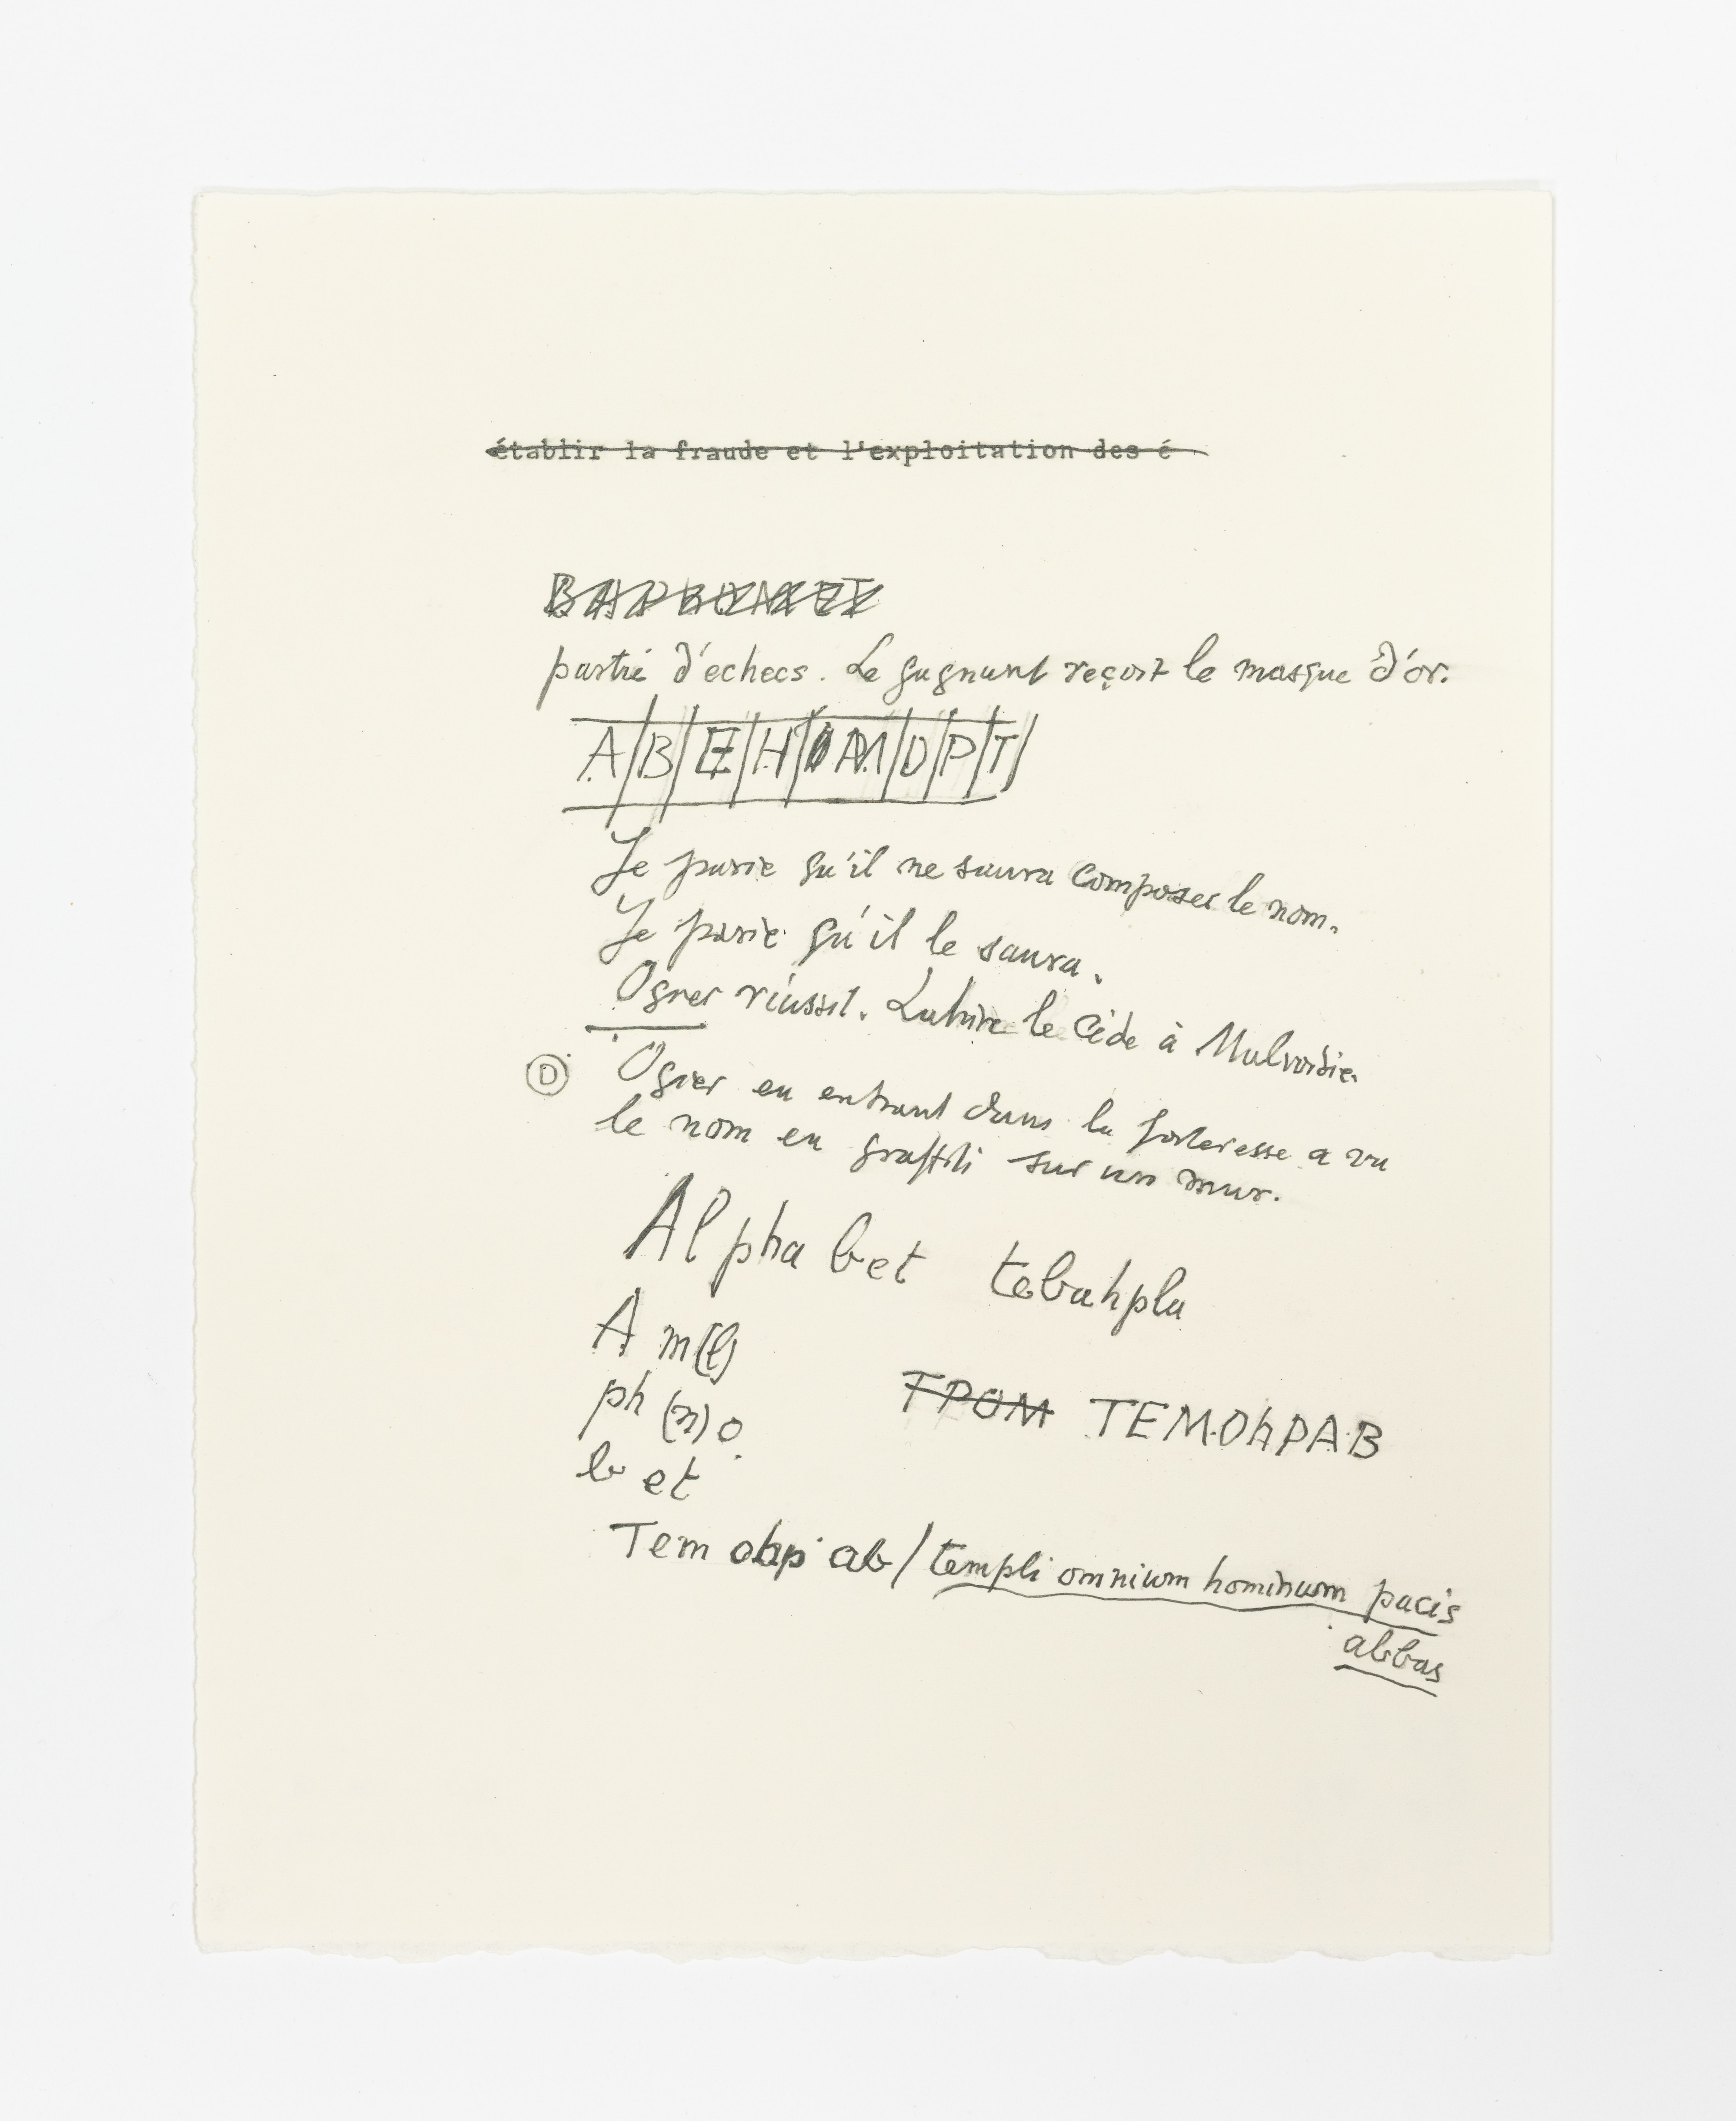 établir la fraude et l'exploitation des é
partie d'echecs. Le gagnant reçoit le masque d'or.
A B E H M O P T
Je parie qu'il ne saura composer le nom.
Je parie qu'il le saura.
Ogier réussit. Lahire le cède à Malvoisie.
D Ogier en entrant dans la forteresse a vu
le nom en graffiti sur un mur.
Alphabet tebahpla
A m(l)
ph (n) o
FROM TEMOhPAB
b et
Tem ohp ab / templi omnium hominum pacis
abbas